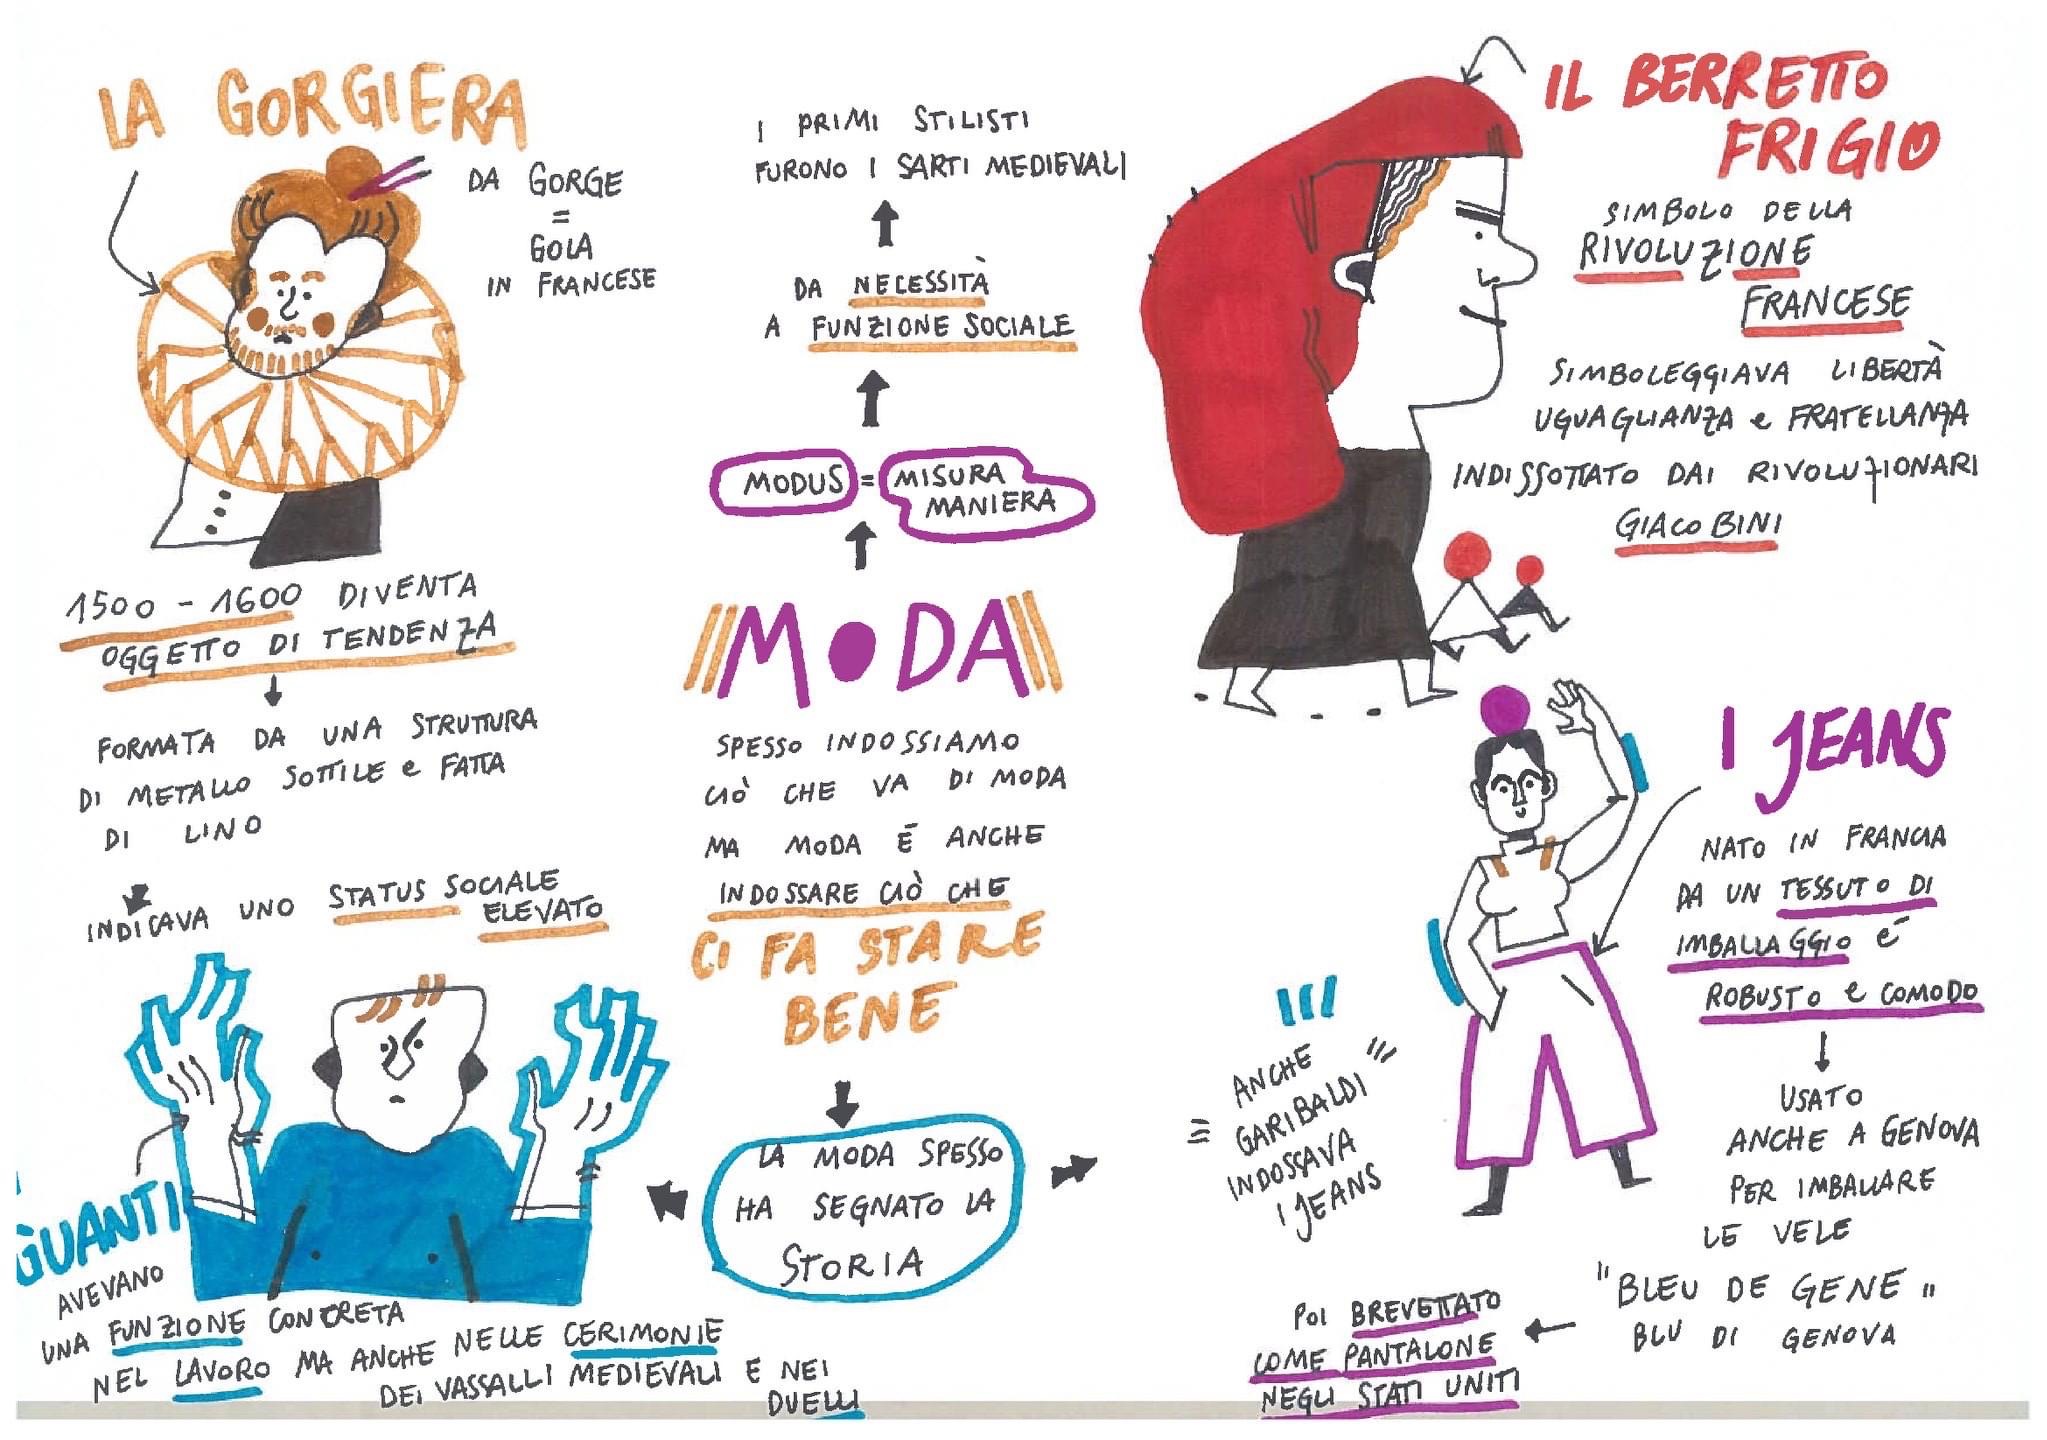 LA GORGIERA
DA GORGE
=
GOLA
IN FRANCESE
1500 - 1600 DIVENTA
OGGETTO DI TENDENZA
FORMATA DA UNA STRUTTURA
DI METALLO SOTTILE e FATTA
DI LINO
INDICAVA UNO STATUS SOCIALE
ELEVATO
GUANTI
AVEVANO
UNA FUNZIONE CONCRETA
NEL LAVORO MA ANCHE NELLE CERIMONIE
DEI VASSALLI MEDIEVALI E NEI
DUELLI
I PRIMI STILISTI
FURONO I SARTI MEDIEVALI
DA NECESSITÀ
A FUNZIONE SOCIALE
MODUS = MISURA
MANIERA
MODA
SPESSO INDOSSIAMO
CIÒ CHE VA DI MODA
MA MODA È ANCHE
INDOSSARE CIÒ CHE
CI FA STARE
BENE
LA MODA SPESSO
HA SEGNATO LA
STORIA
IL BERRETTO
FRIGIO
SIMBOLO DELLA
RIVOLUZIONE
FRANCESE
SIMBOLEGGIAVA LIBERTÀ
UGUAGLIANZA e FRATELLANZA
INDISSOTTATO DAI RIVOLUZIONARI
GIACOBINI
I JEANS
NATO IN FRANCIA
DA UN TESSUTO DI
IMBALLAGGIO È
ROBUSTO e COMODO
USATO
ANCHE A GENOVA
PER IMBALLARE
LE VELE
"BLEU DE GENE"
BLU DI GENOVA
POI BREVETTATO
COME PANTALONE
NEGLI STATI UNITI
ANCHE
GARIBALDI
INDOSSAVA
I JEANS